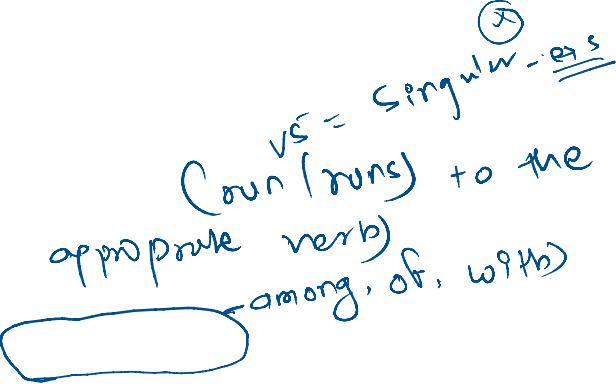 x
vs = singular - es
(oun (runs) to the
approprate verb)
- among, of, with)